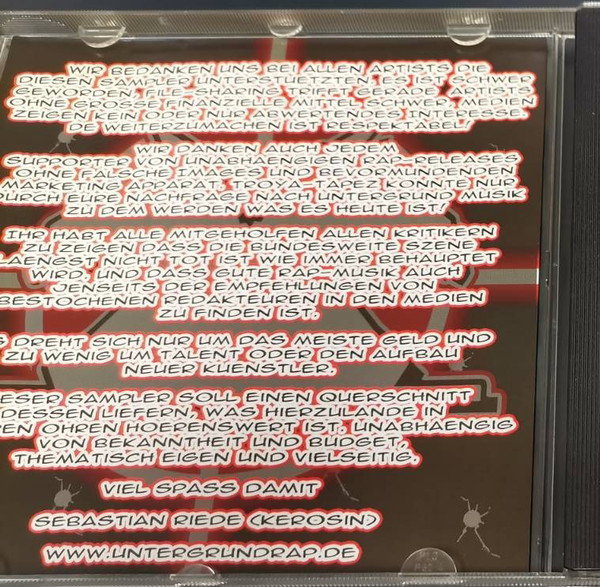 WIR BEDANKEN UNS BEI ALLEN ARTISTS DIE
DIESEN SAMPLER UNTERSTUETZTEN. ES IST SCHWER
GEWORDEN, FILE-SHARING TRIFFT GERADE ARTISTS
OHNE GROSSE FINANZIELLE MITTEL SCHWER, MEDIEN
ZEIGEN KEIN ODER NUR ABWERTENDES INTERESSE.
DE WEITERZUMACHEN IST RESPEKTABEL!
WIR DANKEN AUCH JEDEM
SUPPORTER VON UNABHAENGIGEN RAP-RELEASES
OHNE FALSCHE IMAGES UND BEVORMUNDENDEN
MARKETING APPARAT. TROYA TAPEZ KONNTE NUR
DURCH EURE NACHFRAGE NACH UNTERGRUND MUSIK
ZU DEM WERDEN WAS ES HEUTE IST!
IHR HABT ALLE MITGEHOLFEN ALLEN KRITIKERN
ZU ZEIGEN DASS DIE BUNDESWEITE SZENE
LAENGST NICHT TOT IST WIE IMMER BEHAUPTET
WIRD. UND DASS GUTE RAP-MUSIK AUCH
JENSEITS DER EMPFEHLUNGEN VON
BESTOCHENEN REDAKTEUREN IN DEN MEDIEN
ZU FINDEN IST.
S DREHT SICH NUR UM DAS MEISTE GELD UND
ZU WENIG UM TALENT ODER DEN AUFBAU
NEUER KUENSTLER.
ESER SAMPLER SOLL EINEN QUERSCHNITT
DESSEN LIEFERN, WAS HIERZULANDE IN
EN OHREN HOERENSWERT IST. UNABHAENGIG
VON BEKANNTHEIT UND BUDGET,
THEMATISCH EIGEN UND VIELSEITIG.
VIEL SPASS DAMIT
SEBASTIAN RIEDE (KEROSIN)
WWW.UNTERGRUNDRAP.DE